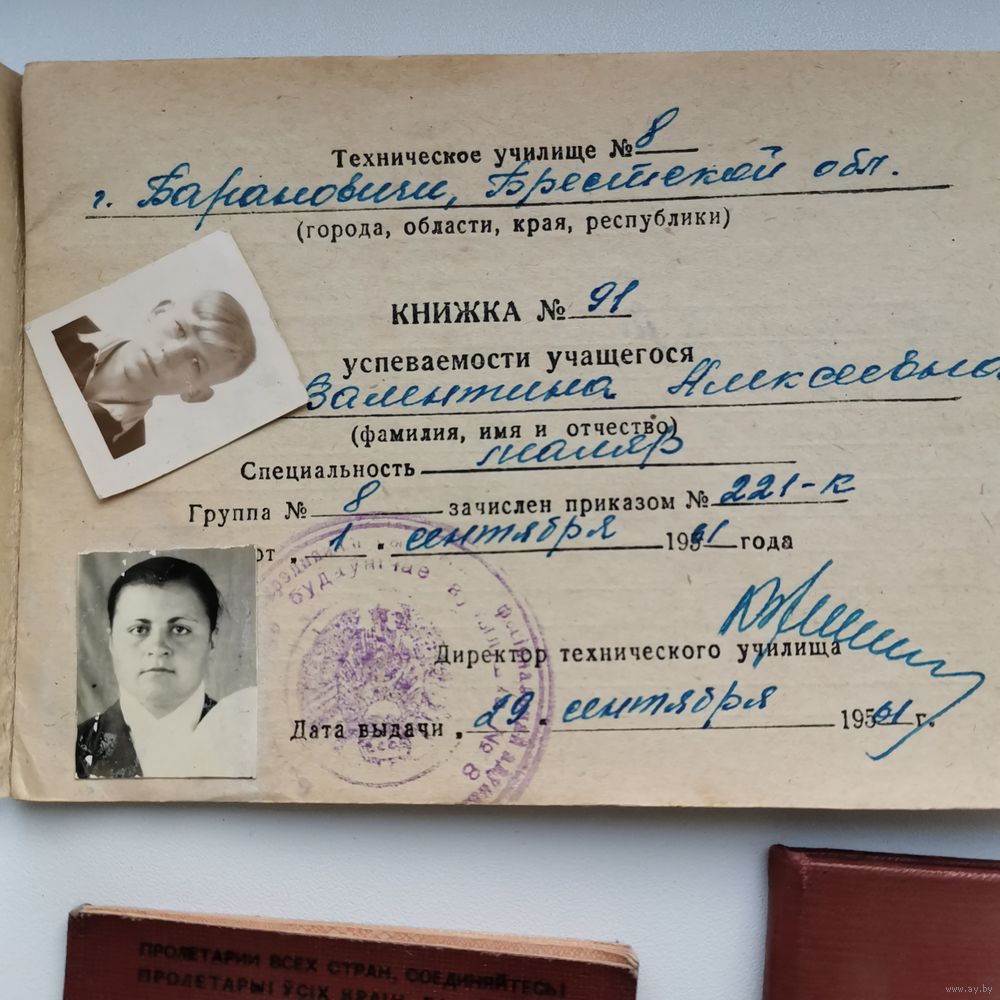 Техническое училище № 8
г. Барановичи, Брестской обл.
(города, области, края, республики)
КНИЖКА № 91
успеваемости учащегося
Валентина Алексеевна
(фамилия, имя и отчество)
Специальность маляр
Группа № 8 зачислен приказом № 221-к
от „ 1 „ сентября 1961 года
будаўнічае
Директор технического училища
Дата выдачи „ 29 „ сентября 1961 г.
№ 8
ПРОЛЕТАРИИ ВСЕХ СТРАН, СОЕДИНЯЙТЕСЬ!
ПРОЛЕТАРЫІ ЎСІХ КРАІН,
www.ay.by